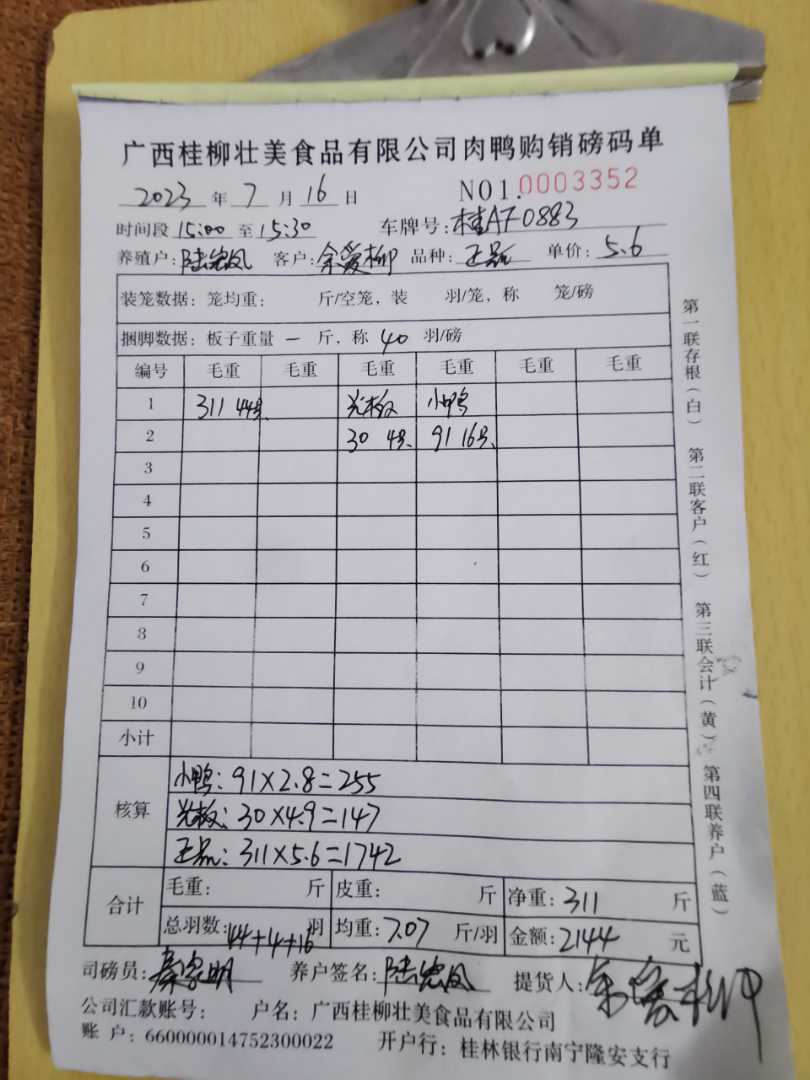 广西桂柳壮美食品有限公司肉鸭购销磅码单
2023 年 7 月 16 日 NO1.0003352
时间段 15:00 至 15:30 车牌号: 桂AF0883
养殖户: 陆忠凤 客户: 余爱柳 品种: 正品 单价: 5.6
装笼数据: 笼均重: 斤/空笼, 装 羽/笼, 称 笼/磅
捆脚数据: 板子重量 一 斤, 称 40 羽/磅
编号 毛重 毛重 毛重 毛重 毛重 毛重
1 311 44只 光板 小鸭
2 30 4只 91 16只
3
4
5
6
7
8
9
10
小计
核算
小鸭: 91×2.8=255
光板: 30×4.9=147
正品: 311×5.6=1742
合计
毛重: 斤 皮重: 斤 净重: 311 斤
总羽数: 44+4+16 羽 均重: 7.07 斤/羽 金额: 2144 元
司磅员: 秦家明 养户签名: 陆忠凤 提货人:
公司汇款账号: 户名: 广西桂柳壮美食品有限公司
账户: 660000014752300022 开户行: 桂林银行南宁隆安支行
第一联存根(白) 第二联客户(红) 第三联会计(黄) 第四联养户(蓝)